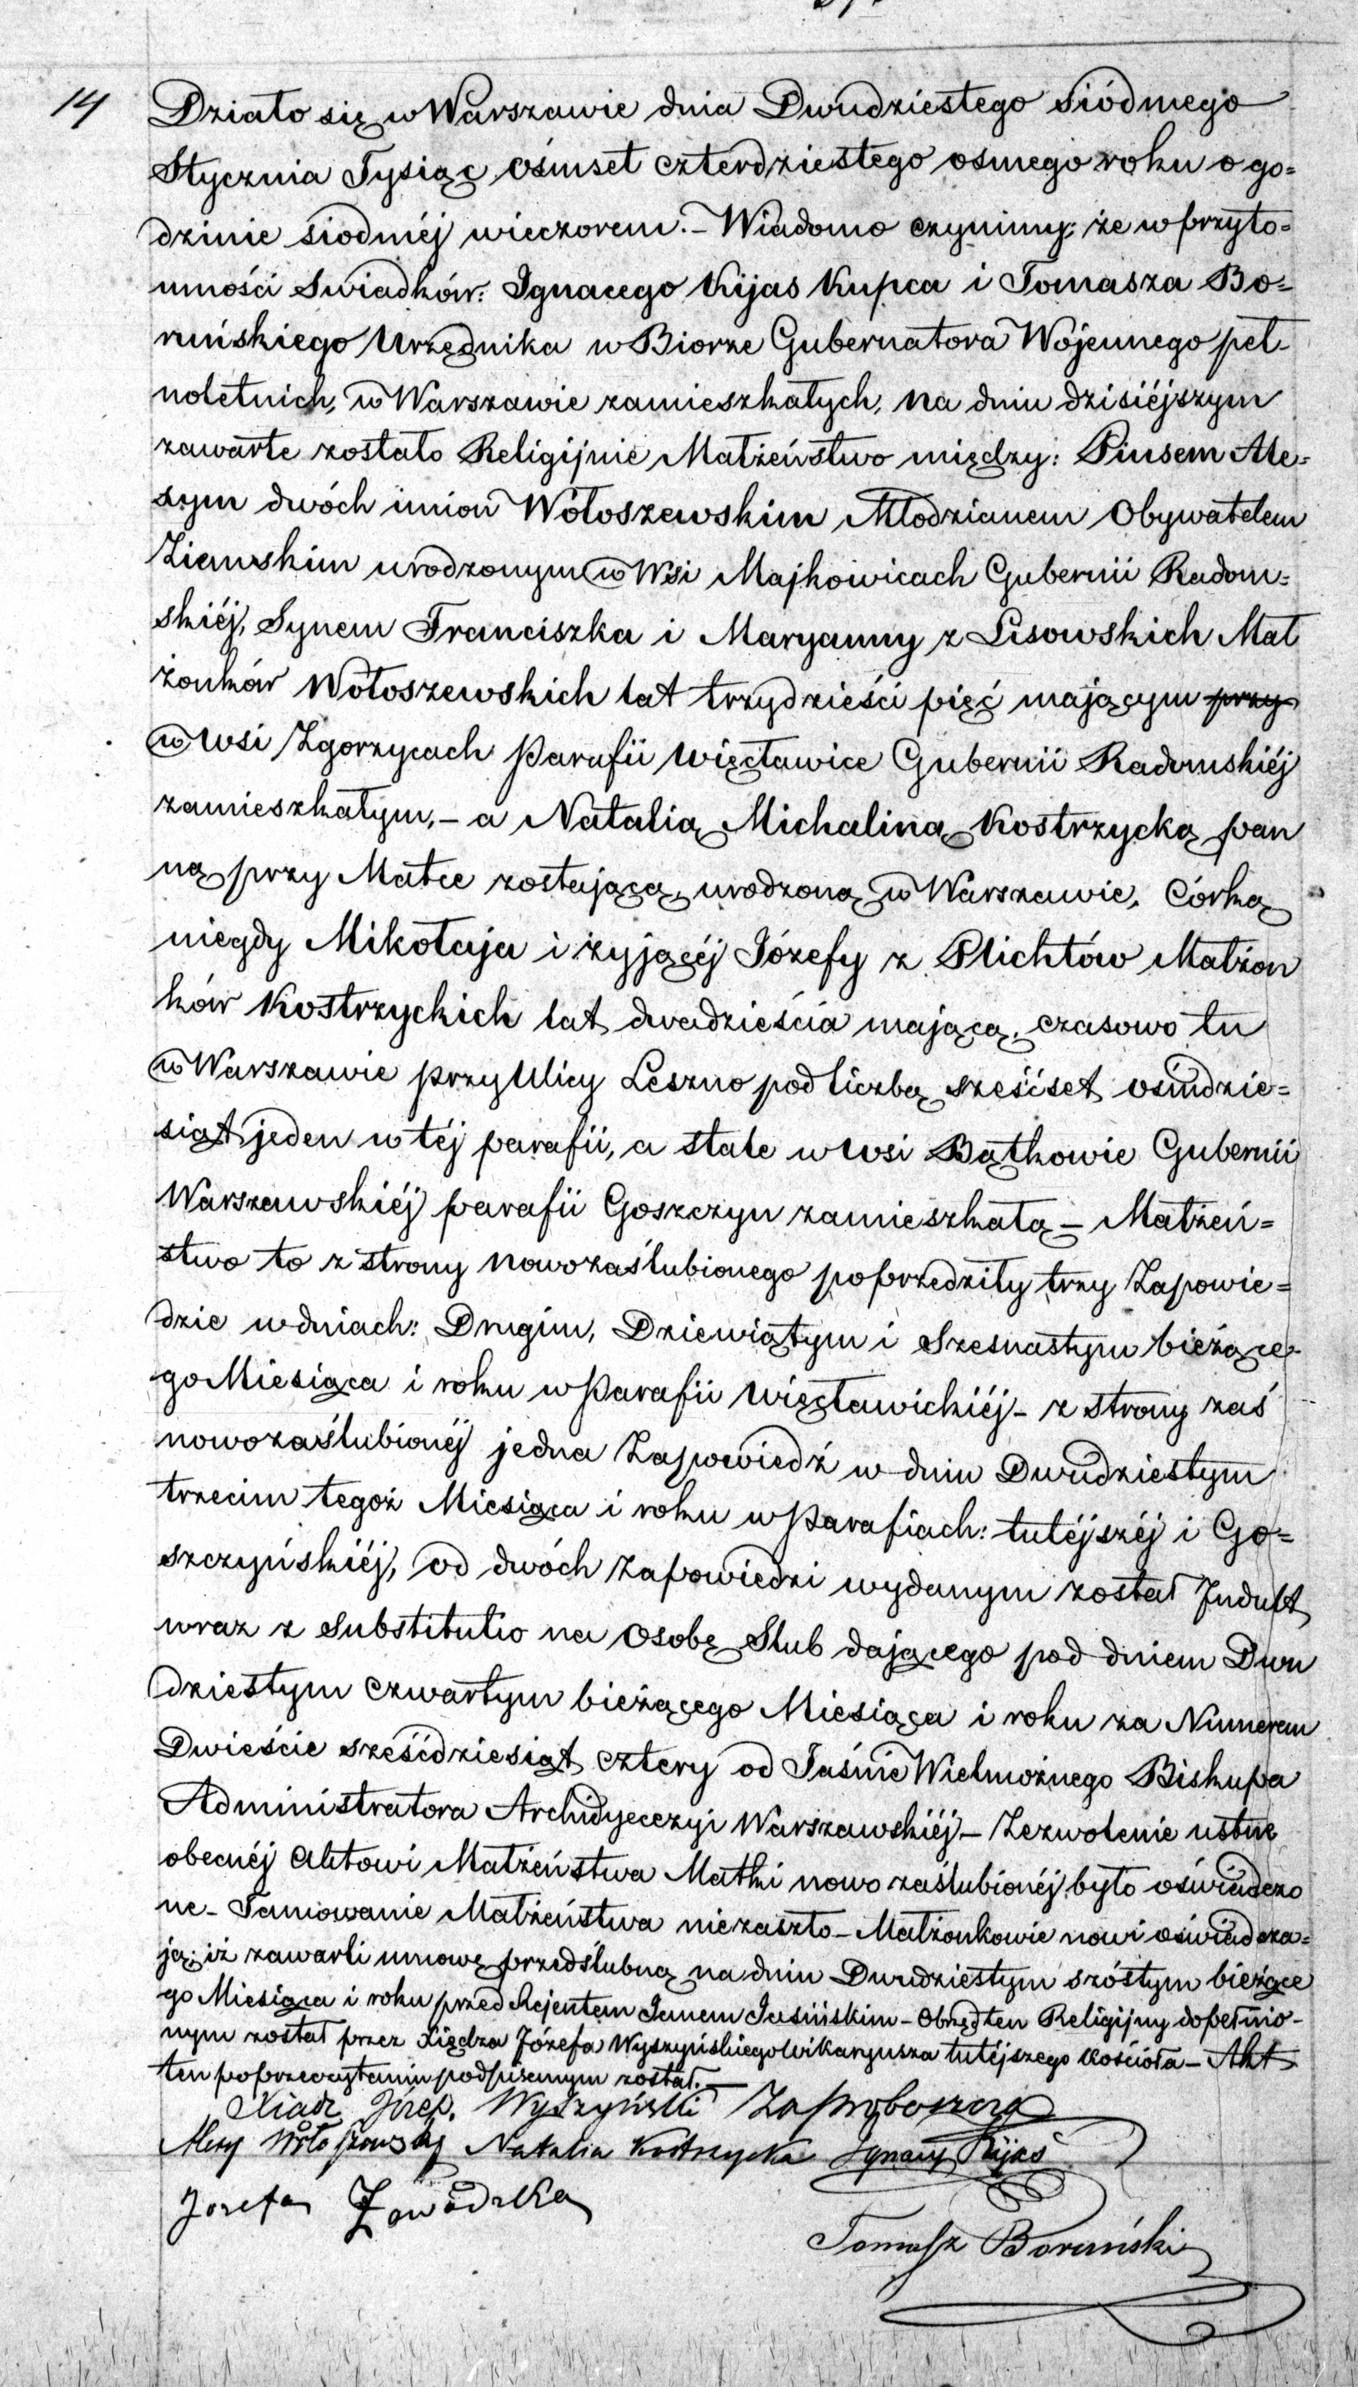 14 Działo się w Warszawie dnia Dwudziestego siódmego
Stycznia Tysiąc ośmset czterdziestego osmego roku o go=
dzinie siodméj wieczorem.– Wiadomo czynimy; że w przyto=
mności Swiadków: Ignacego Kijas Kupca i Tomasza Bo=
ruńskiego Urzędnika w Biorze Gubernatora Wojennego peł
noletnich, w Warszawie zamieszkałych, na dniu dzisiéjszym
zawarte zostało Religijnie Małżeństwo między: Piusem Ale=
xym dwóch imion Wołoszewskim Młodzianem Obywatelem
Ziemskim urodzonym w Wsi Majkowicach Gubernii Radom=
skiéj, Synem Franciszka i Maryanny z Lisowskich Mał
żonków Wołoszewskich lat trzydzieści pięć mającym przy
w Wsi Zgorzycach Parafii Więcławice Gubernii Radomskiéj
zamieszkałym,– a Natalią Michaliną Kostrzycką pan
ną przy Matce zostającą, urodzoną w Warszawie, Córką
niegdy Mikołaja i żyjącéj Józefy z Plichtów Małżon
ków Kostrzyckich lat dwadzieścia mającą, czasowo tu
w Warszawie przy Ulicy Leszno pod liczbą sześćset osmdzie=
siąt jeden w téj parafii, a stale w Wsi Bątkowie Gubernii
Warszawskiéj parafii Goszczyn zamieszkałą – Małżeń=
stwo to z strony nowozaślubionego poprzedziły trzy Zapowie=
dzie w dniach: Drugim, Dziewiątym i Szesnastym bieżące
go Miesiąca i roku w Parafii Więcławickiéj – z strony zaś
nowozaślubionéj jedna Zapowiedź w dniu Dwudziestym
trzecim tegoż Miesiąca i roku w Parafiach: tutéjszéj i Go=
szczyńskiéj, od dwóch Zapowiedzi wydanym został Indult
wraz z Substitutio na Osobę Slub dającego pod dniem Dwu
dziestym czwartym bieżącego Miesiąca i roku za Numerem
Dwieście sześćdziesiąt cztery od Jaśnie Wielmożnego Biskupa
Administratora Archidyecezyi Warszawskiéj – Zezwolenie ustne
obecnéj Aktowi Małżeństwa Matki nowo zaślubionéj było oświadczo
ne – Tamowanie Małżeństwa niezaszło – Małżonkowie nowi oświadcza=
ją; iż zawarli umowę przedślubną na dniu Dwudziestym szóstym bieżące
go Miesiąca i roku przed Rejentem Janem Jasińskim – Obrzęd ten Religijny dopełnio-
nym został przez Xiędza Józefa Wyszyńskiego Wikaryusza tutéjszego Kościoła – Akt
ten po przeczytaniu podpisanym został.–
Xiądz Józef. Wyszyński Za Proboszcza
Alexy Wołoszewski Natalia Kostrzycka Ignacy Kijas
Jozefa Zawadzka
Tomasz Boruński